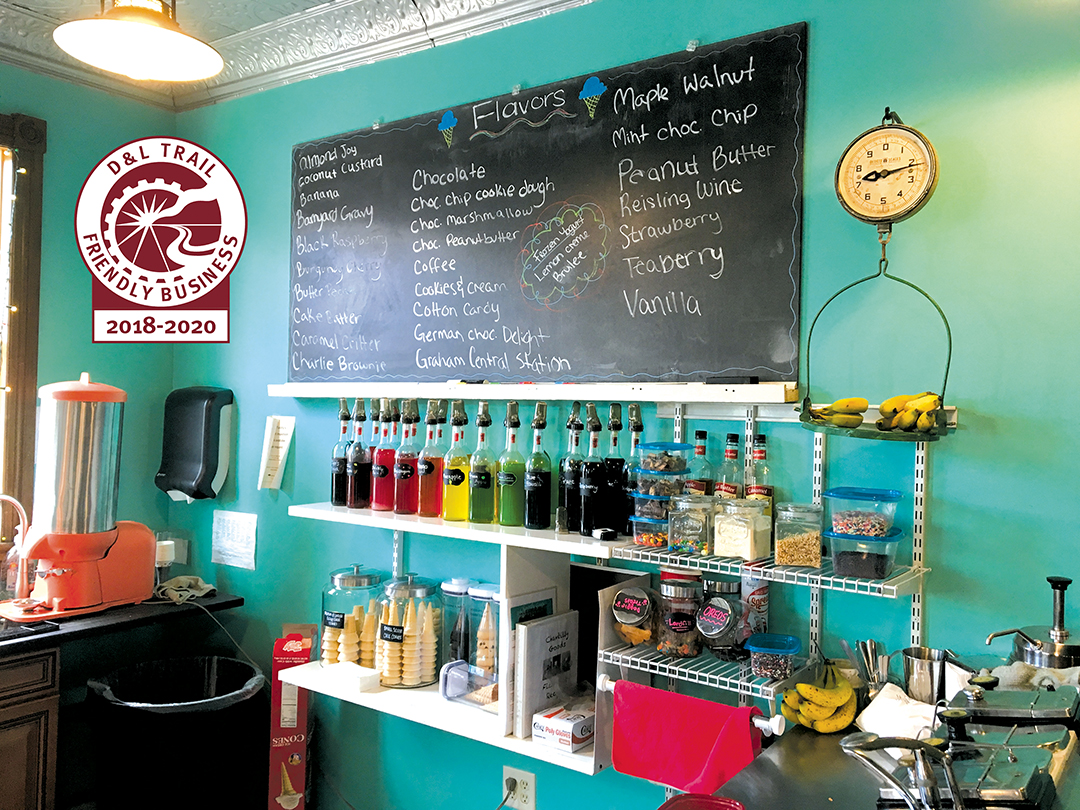 D&L TRAIL
FRIENDLY BUSINESS
2018-2020
Flavors
Almond Joy
Coconut Custard
Banana
Barnyard Gravy
Black Raspberry
Burgundy Cherry
Cake Batter
Caramel Critter
Charlie Brownie
Chocolate
Choc chip cookie dough
Choc. marshmallow
Choc. Peanutbutter
Coffee
Cookies & Cream
Cotton Candy
German choc. Delight
Graham Central Station
Frozen Yogurt
Lemon creme
Brulee
Maple Walnut
Mint choc. Chip
Peanut Butter
Reisling Wine
Strawberry
Teaberry
Vanilla
0
1
2
3
4
5
6
7
8
9
OREOS
CONES
Poly Gloves